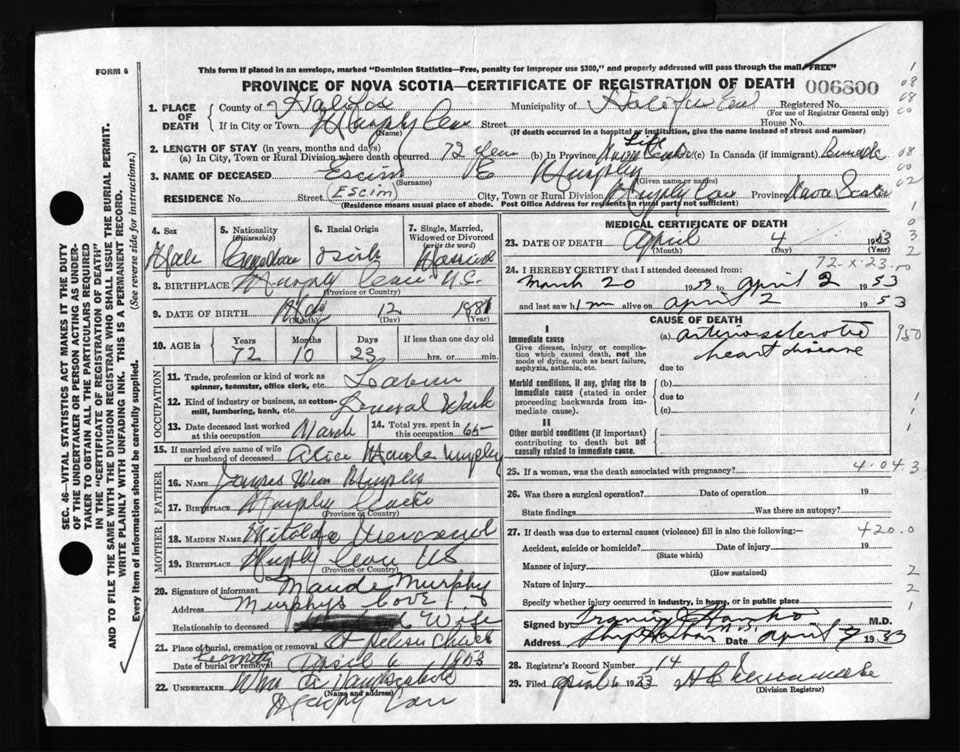 FORM 6
This form if placed in an envelope, marked "Dominion Statistics—Free, penalty for improper use $300," and properly addressed will pass through the mail "FREE"
PROVINCE OF NOVA SCOTIA—CERTIFICATE OF REGISTRATION OF DEATH 006800
SEC. 46—VITAL STATISTICS ACT MAKES IT THE DUTY
OF THE UNDERTAKER OR PERSON ACTING AS UNDER-
TAKER TO OBTAIN ALL THE PARTICULARS REQUIRED
IN THE "CERTIFICATE OF REGISTRATION OF DEATH"
AND TO FILE THE SAME WITH THE DIVISION REGISTRAR WHO SHALL ISSUE THE BURIAL PERMIT.
WRITE PLAINLY WITH UNFADING INK. THIS IS A PERMANENT RECORD.
Every item of information should be carefully supplied. (See reverse side for instructions.)
1. PLACE OF DEATH County of Halifax Municipality of Halifax Registered No.
(For use of Registrar General only)
If in City or Town Murphy Cove Street House No.
(Name) (If death occurred in a hospital or institution, give the name instead of street and number)
2. LENGTH OF STAY (in years, months and days)
(a) In City, Town or Rural Division where death occurred 72 year (b) In Province Life Nova Scotia (c) In Canada (if immigrant)
3. NAME OF DECEASED Escim Murphy
(Surname) (Given name or names)
RESIDENCE No. Street (Escim) City, Town or Rural Division Murphy Cove Province Nova Scotia
(Residence means usual place of abode. Post Office Address for residents in rural parts not sufficient)
4. Sex Male
5. Nationality (Citizenship) Canadian
6. Racial Origin Irish
7. Single, Married, Widowed or Divorced (write the word) Married
8. BIRTHPLACE Murphy Cove N.S.
(Province or Country)
9. DATE OF BIRTH May 12 1881
(Month) (Day) (Year)
10. AGE in Years Months Days If less than one day
72 10 23 hrs. or min.
OCCUPATION
11. Trade, profession or kind of work as spinner, teamster, office clerk, etc.
12. Kind of industry or business, as cotton-mill, lumbering, bank, etc. General Work
13. Date deceased last worked at this occupation March 14. Total yrs. spent in this occupation 65
15. If married give name of wife or husband of deceased Alice Maude Murphy
FATHER
16. Name James Wm Murphy
17. Birthplace Murphy Cove
(Province or Country)
MOTHER
18. Maiden Name
19. Birthplace Murphy Cove NS
(Province or Country)
20. Signature of informant Maude Murphy
Address Murphys Cove
Relationship to deceased Wife
21. Place of burial, cremation or removal
Date of burial or removal April 6 1953
22. UNDERTAKER Wm
(Name and address)
Murphy Cove
MEDICAL CERTIFICATE OF DEATH
23. DATE OF DEATH April 4 1953
(Month) (Day) (Year)
72 x 23.00
24. I HEREBY CERTIFY that I attended deceased from
March 20 1953 to April 2 1953
and last saw him alive on April 2 1953
CAUSE OF DEATH
I
Immediate cause
Give disease, injury or complication which caused death, not the mode of dying, such as heart failure, asphyxia, asthenia, etc.
(a) arteriosclerotic
heart disease
950
due to
Morbid conditions, if any, giving rise to immediate cause (stated in order proceeding backwards from immediate cause).
(b)
due to
(c)
II
Other morbid conditions (if important) contributing to death but not causally related to immediate cause.
25. If a woman, was the death associated with pregnancy? 4.043
26. Was there a surgical operation? Date of operation 19
State findings Was there an autopsy?
27. If death was due to external causes (violence) fill in also the following: 420.0
Accident, suicide or homicide? Date of injury 19
(State which)
Manner of injury
(How sustained)
Nature of injury
Specify whether injury occurred in industry, in home, or in public place
Signed by M.D.
Address Ship Harbour N.S. Date April 1953
28. Registrar's Record Number 14
29. Filed April 6 1953
(Division Registrar)